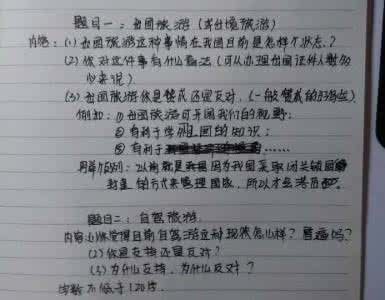 题目一：出国旅游（或出境旅游）
内容：(1) 出国旅游这种事情在我国目前是怎样个状态？
(2) 你对这件事有什么看法（可以办理出国证件人数多
少来说）
(3) 出国旅游你是赞成还是反对，（一般赞成的好写些）
例如：① 出国旅游可开阔我们的视野；
② 有利于学 国的知识；
③ 有利于……
用举例：以前就是因为我国采取闭关锁国
封 方式来管理国家，所以才会落后。
题目二：自驾旅游
内容：(1) 你觉得目前自驾游这种现状怎么样？普遍吗？
(2) 你是支持还是反对？
(3) 为什么支持，为什么反对？
字数不低于120字。